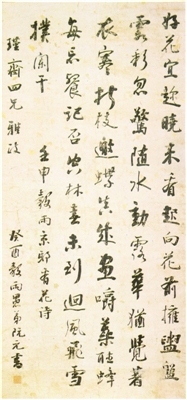 好花宜趁曉來看起向花前擁盥盤
雲影忽驚隨水動露華猶覺著
衣寒折枝邀蝶真成畫嚼蕊蜂
每忘餐記否空林春未到迴風飛雪
撲闌干
壬申穀雨京邸看花詩
瑾齋四兄雅政
癸酉穀雨愚弟阮元書